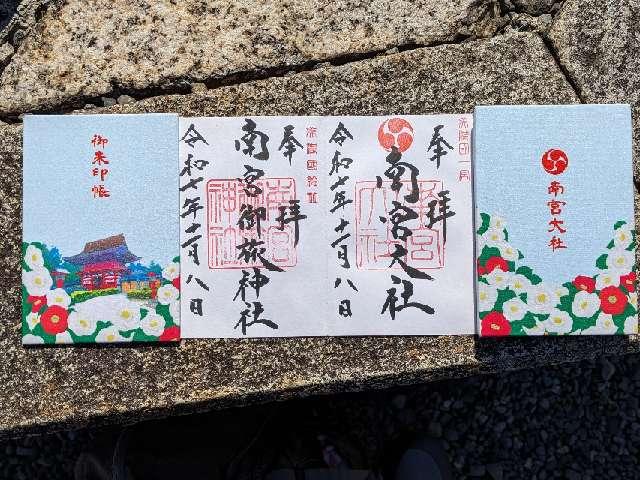 御朱印帳
奉拝
南宮御旅神社
令和七年十一月八日
南宮
神社
美濃国総社
奉拝
南宮大社
令和七年十一月八日
南宮
大社
美濃国一宮
南宮大社